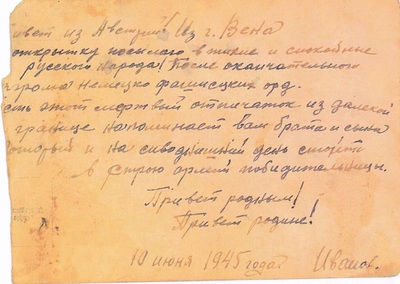 ивет из Австрии! Из г. Вена
открытку посылаю в тихие и спокойные
русского народа! После окончательного
згрома немецко фашисцких орд.
сть этот мертвый отпечаток из далекой
границе напоминает вам брата и сына
который и на сиводнишний день стоить
в строю армий победительницы.
Привет родным!
Привет родине!
10 июня 1945 года Иванов.